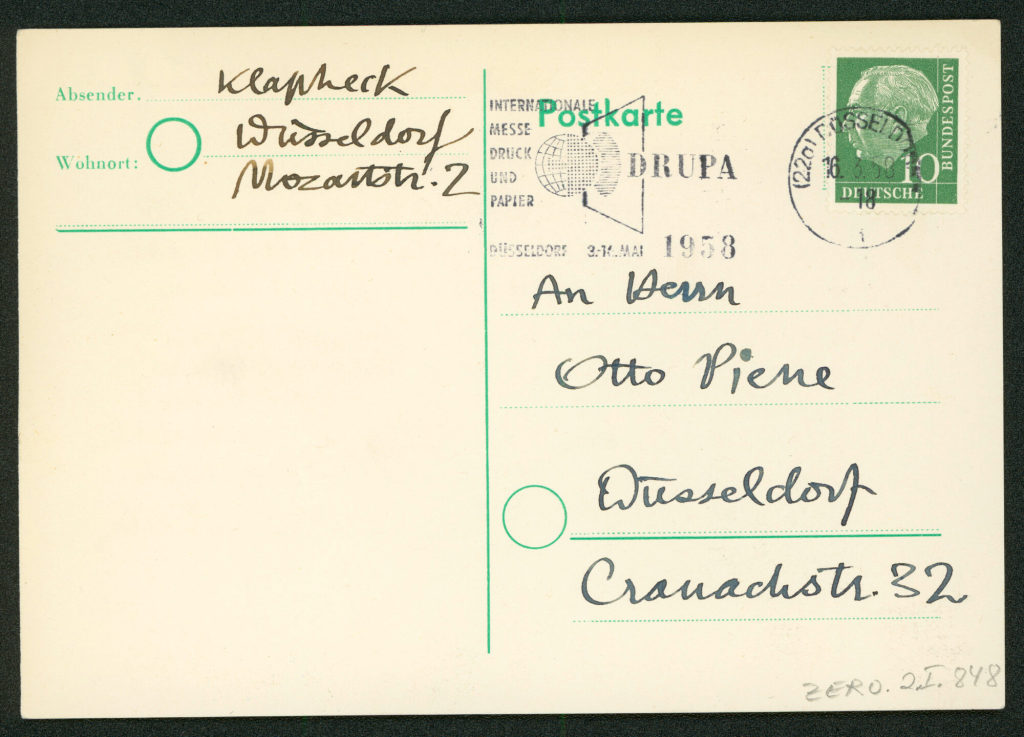 Absender: Klapheck
Düsseldorf
Wohnort: Mozartstr. 2
Postkarte
INTERNATIONALE
MESSE
DRUCK
UND
PAPIER
DRUPA
DÜSSELDORF 3.-16. MAI 1958
(22a) DÜSSELD
16. 3. 58
18
i
BUNDESPOST
10
DEUTSCHE
An Herrn
Otto Piene
Düsseldorf
Cranachstr. 32
ZERO. 2.I. 848